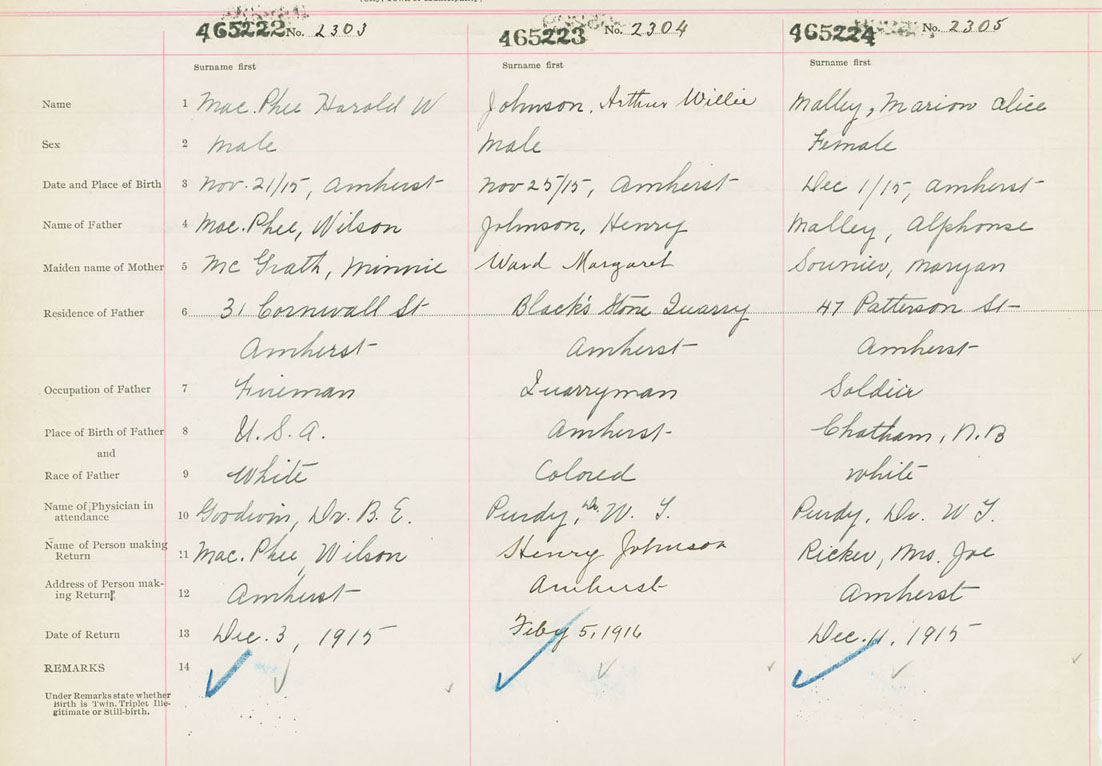 465222 No. 2303 465223 No. 2304 465224 No. 2305
Surname first Surname first Surname first
Name 1 Mac.Phee Harold W Johnson, Arthur Willie Malley, Marion Alice
Sex 2 Male Male Female
Date and Place of Birth 3 Nov. 21/15, Amherst Nov 25/15, Amherst Dec 1/15, Amherst
Name of Father 4 Mac.Phee, Wilson Johnson, Henry Malley, Alphonse
Maiden name of Mother 5 Mc Grath, Minnie Ward Margaret Maryan
Residence of Father 6 31 Cornwall St Black's Stone Quarry 47 Patterson St
Amherst Amherst Amherst
Occupation of Father 7 Fireman Quarryman Soldier
Place of Birth of Father 8 U.S.A. Amherst Chatham, N.B
and
Race of Father 9 White Colored White
Name of Physician in
attendance 10 Goodwin, Dr. B.E. Purdy, Dr. W. T. Purdy, Dr. W T.
Name of Person making
Return 11 Mac.Phee, Wilson Henry Johnson Ricker, Mrs. Joe
Address of Person mak-
ing Return 12 Amherst Amherst Amherst
Date of Return 13 Dec. 3, 1915 Feby 5, 1916 Dec. 11, 1915
REMARKS 14
Under Remarks state whether
Birth is Twin, Triplet Ille-
gitimate or Still-birth.